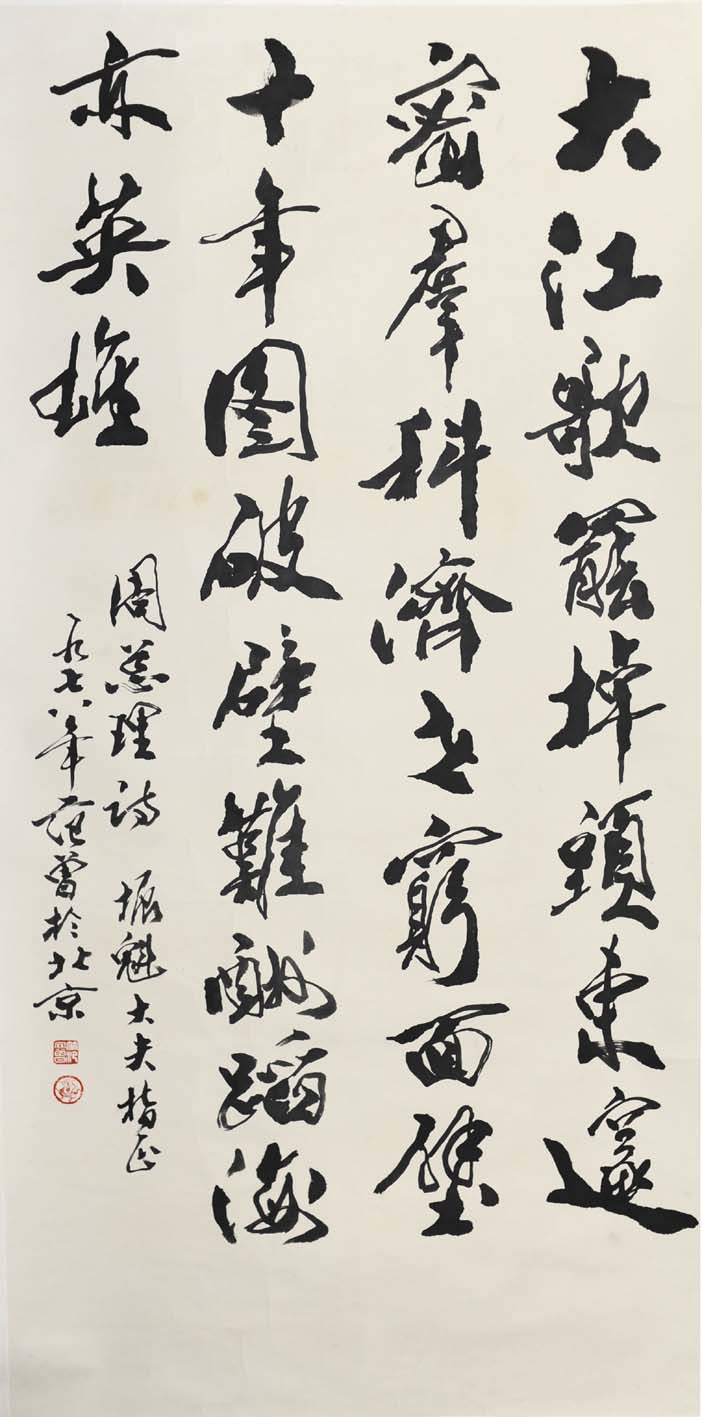 大江歌罷掉頭東邃
密羣科濟世窮面壁
十年图破壁難酬蹈海
亦英雄
周总理詩 振魁大夫指正
一九七八年范曾於北京